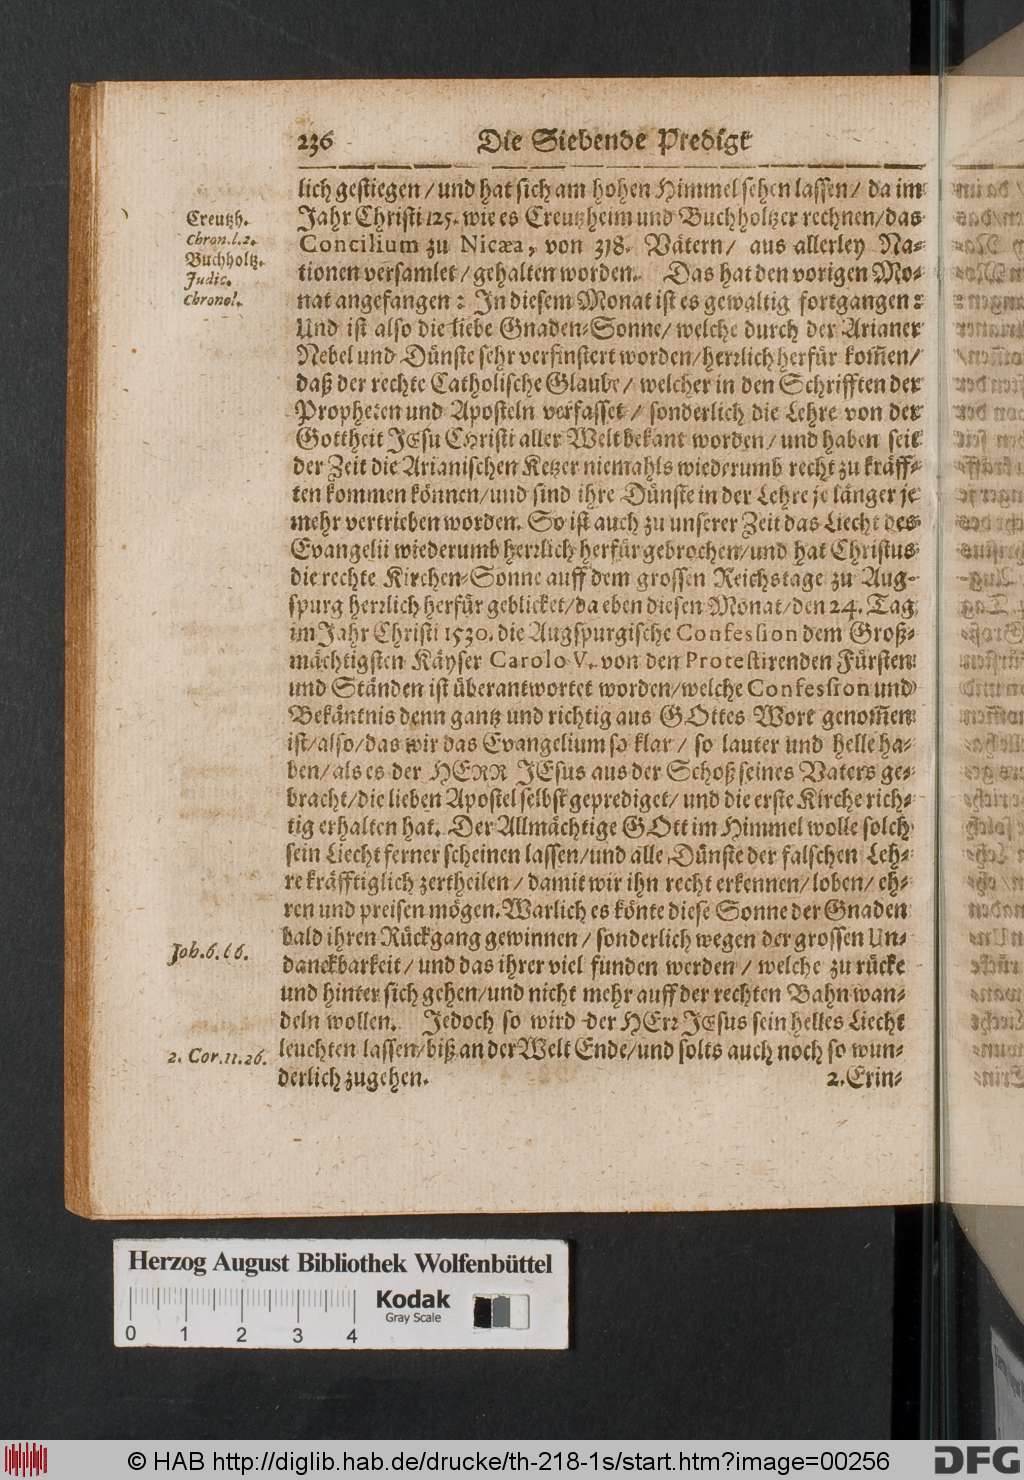 236 Die Siebende Predigt
lich gestiegen / und hat sich am hohen Himmel sehen lassen / da im
Jahr Christi 125. wie es Creutzheim und Buchholtzer rechnen / das
Concilium zu Nicæa, von 318. Vätern / aus allerley Na-
tionen versamlet / gehalten worden. Das hat den vorigen Mo-
nat angefangen: In diesem Monat ist es gewaltig fortgangen:
Und ist also die liebe Gnaden-Sonne / welche durch der Arianer
Nebel und Dünste sehr verfinstert worden / herrlich herfür kom̃en /
daß der rechte Catholische Glaube / welcher in den Schrifften der
Propheten und Aposteln verfasset / sonderlich die Lehre von der
Gottheit JEsu Christi aller Welt bekant worden / und haben seit
der Zeit die Arianischen Ketzer niemahls wiederumb recht zu kräff-
ten kommen können / und sind ihre Dünste in der Lehre je länger je
mehr vertrieben worden. So ist auch zu unserer Zeit das Liecht des
Evangelii wiederumb herrlich herfür gebrochen / und hat Christus
die rechte Kirchen-Sonne auff dem grossen Reichstage zu Aug-
spurg herrlich herfür geblicket / da eben diesen Monat / den 24. Tag
im Jahr Christi 1530. die Augspurgische Confession dem Groß-
mächtigsten Käyser Carolo V. von den Protestirenden Fürsten
und Ständen ist überantwortet worden / welche Confession und
Bekäntnis denn gantz und richtig aus GOttes Wort genom̃en
ist / also / das wir das Evangelium so klar / so lauter und helle ha-
ben / als es der HERR JEsus aus der Schoß seines Vaters ge-
bracht / die lieben Apostel selbst geprediget / und die erste Kirche rich-
tig erhalten hat. Der Allmächtige GOtt im Himmel wolle solch
sein Liecht ferner scheinen lassen / und alle Dünste der falschen Leh-
re kräfftiglich zertheilen / damit wir ihn recht erkennen / loben / eh-
ren und preisen mögen. Warlich es könte diese Sonne der Gnaden
bald ihren Rückgang gewinnen / sonderlich wegen der grossen Un-
danckbarkeit / und das ihrer viel funden werden / welche zu rücke
und hinter sich gehen / und nicht mehr auff der rechten Bahn wan-
deln wollen. Jedoch so wird der HErr JEsus sein helles Liecht
leuchten lassen / biß an der Welt Ende / und solts auch noch so wun-
derlich zugehen. 2. Erin-
Creutzh.
Chron. l. 2.
Buchholtz.
Judic.
Chronol.
Joh. 6. 66.
2. Cor. 11. 26.
Herzog August Bibliothek Wolfenbüttel
Kodak
Gray Scale
0 1 2 3 4
© HAB http://diglib.hab.de/drucke/th-218-1s/start.htm?image=00256
DFG